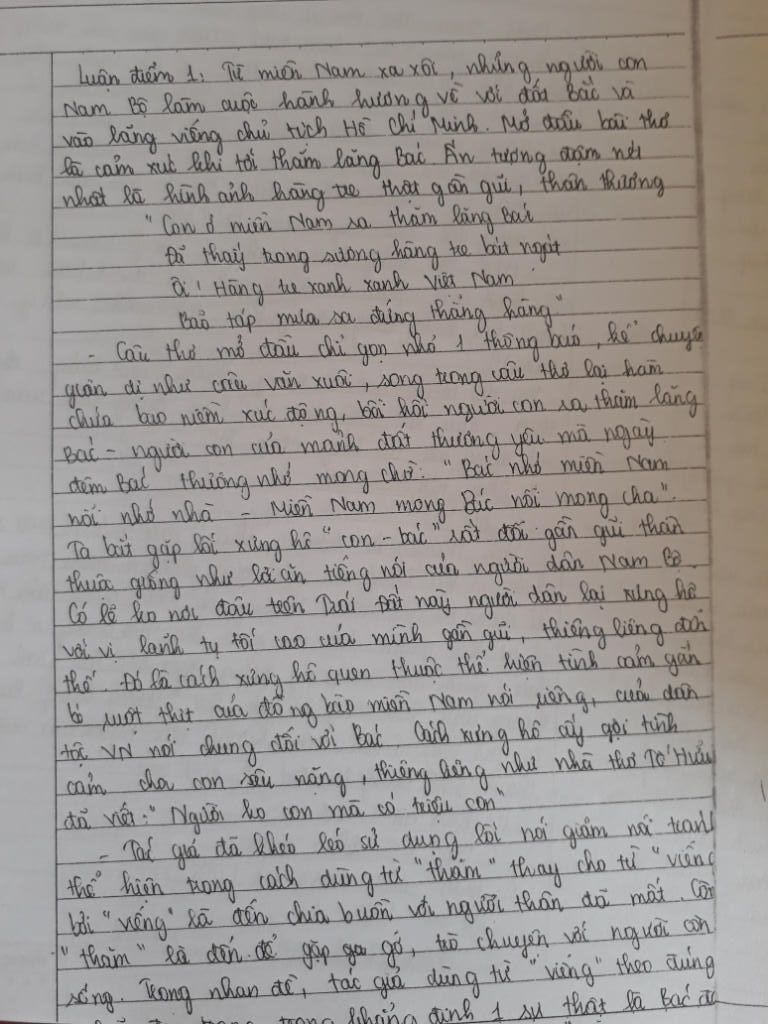 Luận điểm 1: Từ miền Nam xa xôi, những người con
Nam Bộ làm cuộc hành hương về với đất Bắc và
vào lăng viếng chủ tịch Hồ Chí Minh. Mở đầu bài thơ
là cảm xúc khi tới thăm lăng Bác Ấn tượng đậm nét
nhất là hình ảnh hàng tre thật gần gũi, thân thương
"Con ở miền Nam ra thăm lăng Bác
Đã thấy trong sương hàng tre bát ngát
Ôi! Hàng tre xanh xanh Việt Nam
Bão táp mưa sa đứng thẳng hàng"
- Câu thơ mở đầu chỉ gọn nhỏ 1 thông báo, kể chuyện
giản dị như câu văn xuôi, song trong câu thơ lại hàm
chứa bao niềm xúc động, bồi hồi người con ra thăm lăng
Bác - người con của mảnh đất thương yêu mà ngày
đêm Bác thương nhớ mong chờ: "Bác nhớ miền Nam
nỗi nhớ nhà - Miền Nam mong Bác nỗi mong cha".
Ta bắt gặp lối xưng hô "con - bác" rất đỗi gần gũi thân
thuộc giống như lời ăn tiếng nói của người dân Nam Bộ.
Có lẽ ko nơi đâu trên Trái Đất này người dân lại xưng hô
với vị lãnh tụ tối cao của mình gần gũi, thiêng liêng đến
thế. Đó là cách xưng hô quen thuộc thể hiện tình cảm gắn
bó ruột thịt của đồng bào miền Nam nói riêng, của dân
tộc VN nói chung đối với Bác. Cách xưng hô ấy gợi tình
cảm cha con sâu nặng, thiêng liêng như nhà thơ Tố Hữu
đã viết: "Người ko con mà có triệu con"
- Tác giả đã khéo léo sử dụng lối nói giảm nói tránh
thể hiện trong cách dùng từ "thăm" thay cho từ "viếng
bởi "viếng" là đến chia buồn với người thân đã mất. Còn
"thăm" là đến để gặp gỡ, trò chuyện với người còn
sống. Trong nhan đề, tác giả dùng từ "viếng" theo đúng
trong khẳng định 1 sự thật là Bác đã